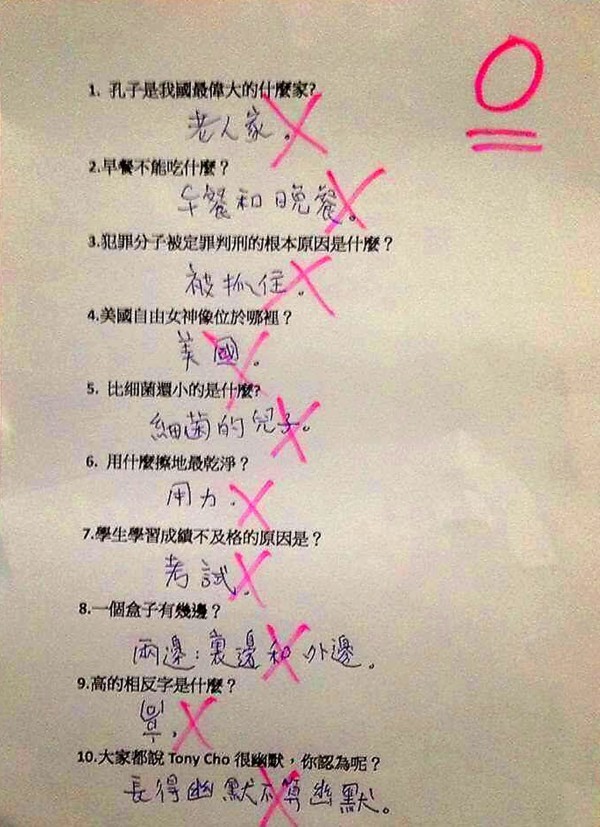 0
1. 孔子是我國最偉大的什麼家?
老人家。
2.早餐不能吃什麼？
午餐和晚餐。
3.犯罪分子被定罪判刑的根本原因是什麼？
被抓住。
4.美國自由女神像位於哪裡？
美國。
5. 比細菌還小的是什麼?
細菌的兒子。
6. 用什麼擦地最乾淨？
用力.
7.學生學習成績不及格的原因是？
考試.
8.一個盒子有幾邊？
兩邊:裏邊和外邊。
9.高的相反字是什麼？
10.大家都說 Tony Cho 很幽默，你認為呢？
長得幽默不算幽默。